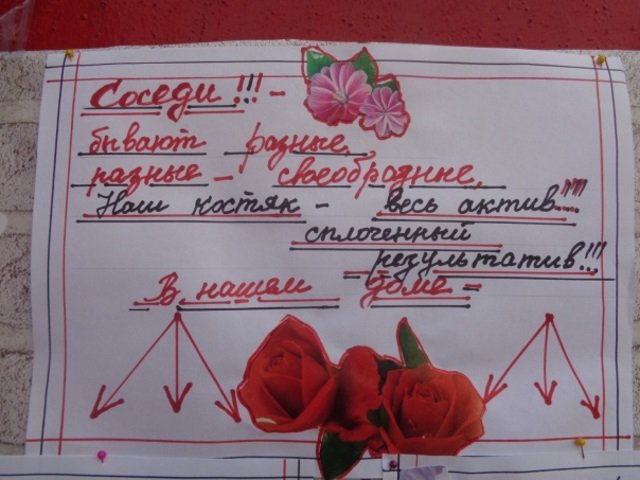 Соседи!!! -
бывают разные,
разные - своеобразные.
Наш костяк - весь актив!!!...
сплоченный
- результатив!!!
- В нашем доме -